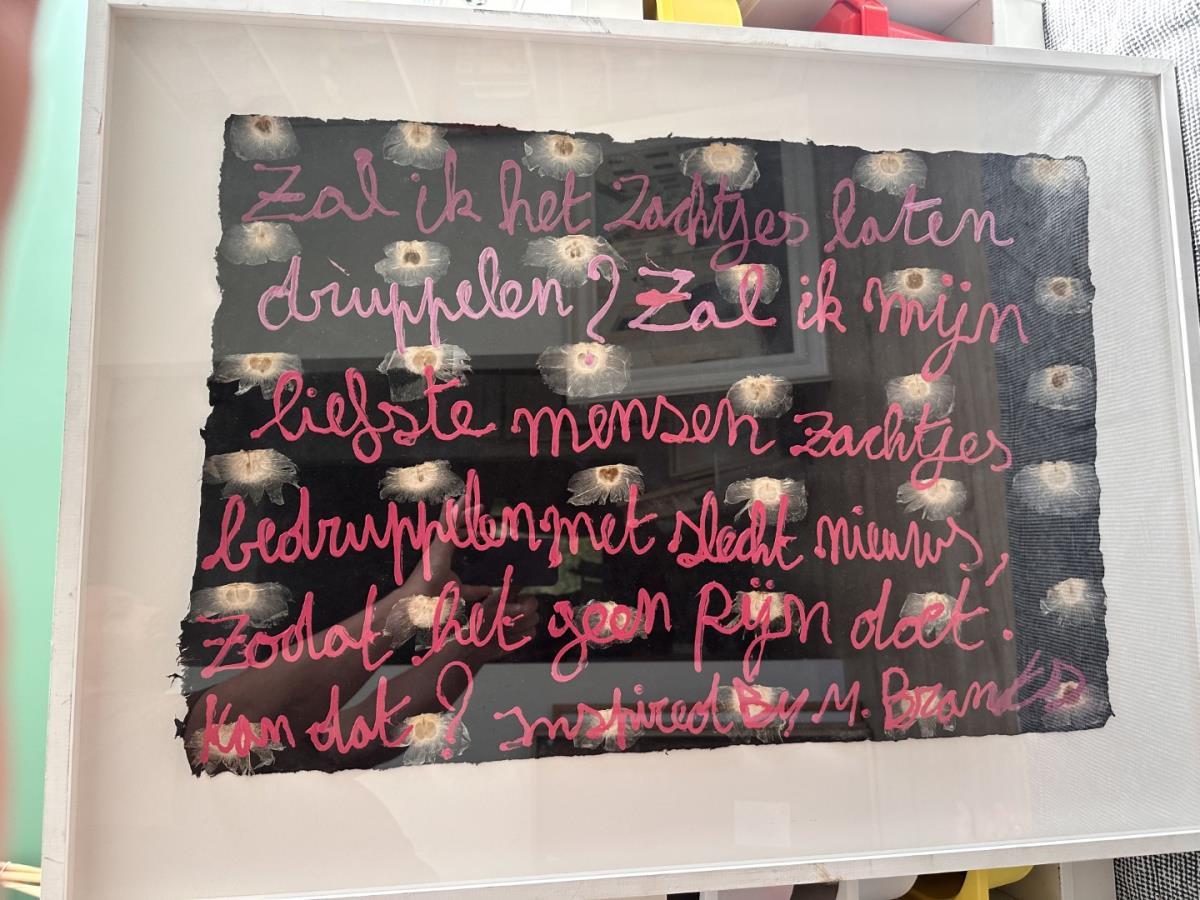 Zal ik het zachtjes laten
druppelen? Zal ik mijn
liefste mensen zachtjes
bedruppelen met slecht nieuws,
zodat het geen pijn doet.
Kan dat? Inspired By M. Brants